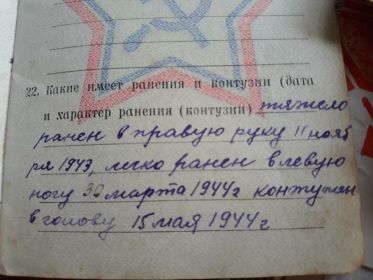 22. Какие имеет ранения и контузии (дата
и характер ранения (контузии) тяжело
ранен в правую руку 11 нояб
ря 1943, легко ранен в левую
ногу 30 марта 1944 г контужен
в голову 15 мая 1944 г